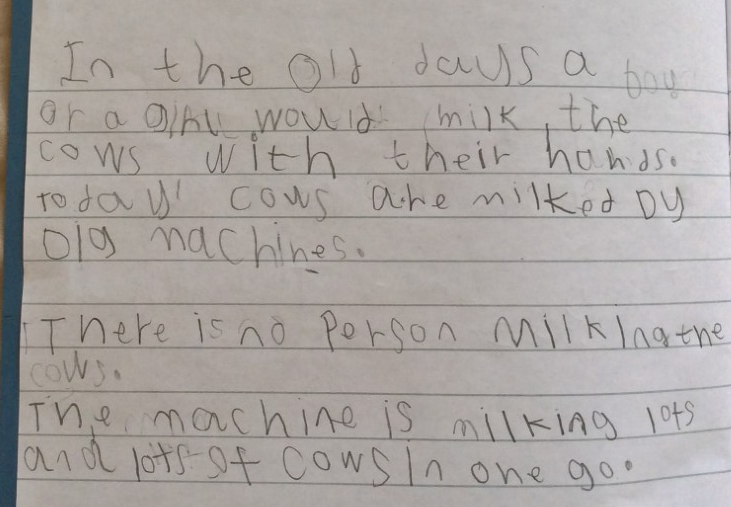 In the old days a boy
or a girl would milk the
cows with their hands.
today cows are milked by
big machines.
There is no person milking the
cows.
The machine is milking lots
and lots of cows in one go.